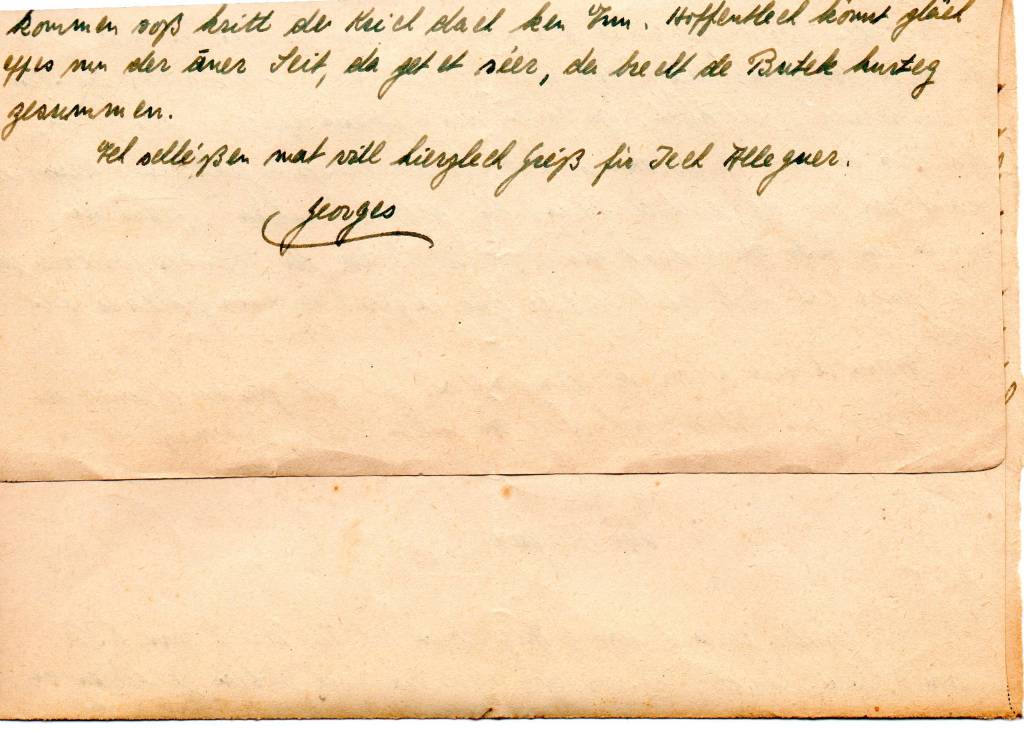 kommen soß kritt de Krich dach ken Enn. Hoffentlech kömt gläch
eppes vun der äner Seit, da get et séer, da brecht de Buttek hurteg
zesummen.
Ech schléißen mat vill hierzlech Gréiß fir Iech Alleguer.
Georges